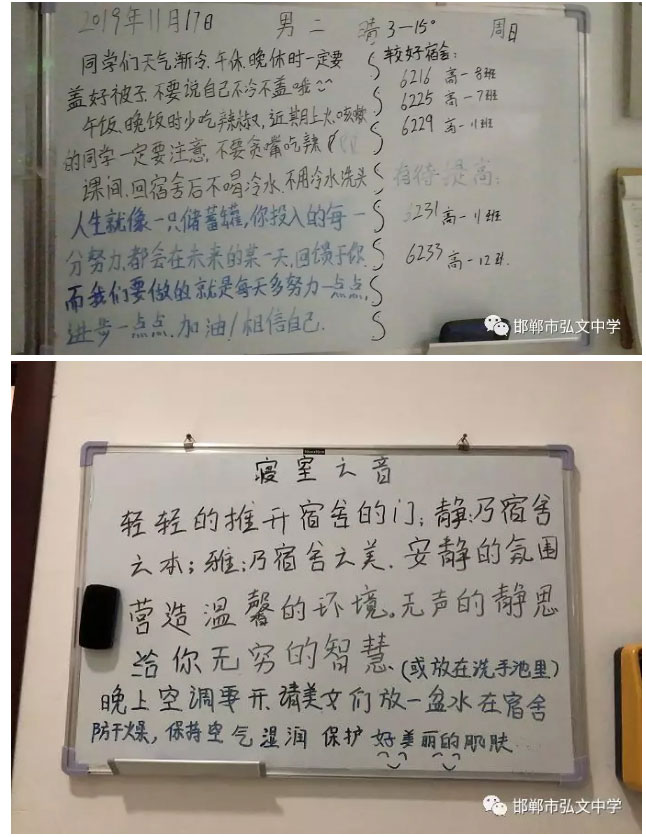 2019年11月17日 男二 晴 3-15° 周日
同学们天气渐冷.午休.晚休时一定要
盖好被子.不要说自己不冷不盖哦~~
午饭.晚饭时少吃辣椒，近期上火.咳嗽
的同学一定要注意，不要贪嘴吃辣
课间.回宿舍后不喝冷水.不用冷水洗头
人生就像一只储蓄罐,你投入的每一
分努力.都会在未来的某一天.回馈于你
而我们要做的就是每天多努力一点点,
进步一点点.加油!相信自己.
较好宿舍：
6216 高一8班
6225 高一7班
6229 高一11班
有待提高：
6231 高一11班
6233 高一12班.
邯郸市弘文中学
寝室之音
轻轻的推开宿舍的门；静:乃宿舍
之本；雅:乃宿舍之美.安静的氛围
营造温馨的环境。无声的静思
给你无穷的智慧
(或放在洗手池里)
晚上空调要开.请美女们放一盆水在宿舍
防干燥，保持空气湿润 保护好美丽的肌肤...
邯郸市弘文中学